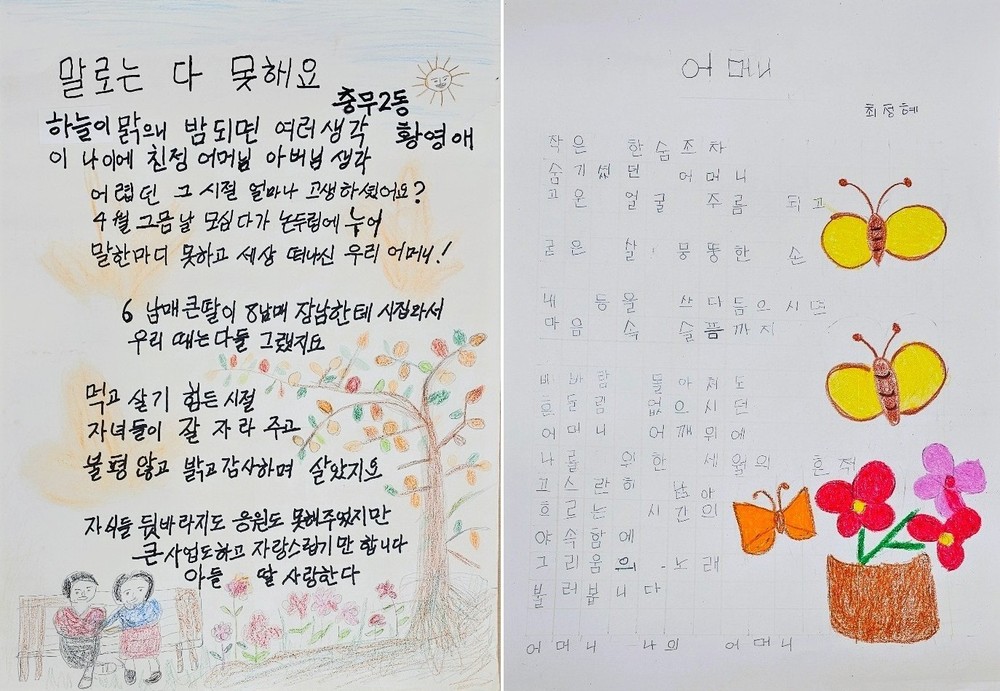 말로는 다 못해요
충무2동
황영애
하늘이 맑으니 밤되면 여러생각
이 나이에 친정 어머님 아버님 생각
어렵던 그 시절 얼마나 고생하셨어요?
4월 그믐날 모심다가 논두렁에 누어
말한마디 못하고 세상 떠나신 우리 어머니!
6 남매 큰딸이 8남매 장남한테 시집와서
우리 때는 다들 그랬지요
먹고 살기 힘든 시절
자녀들이 잘 자라 주고
불평 않고 밝고 감사하며 살았지요
자식들 뒷바라지도 응원도 못해주었지만
큰 사업도하고 자랑스럽기만 합니다
아들 딸 사랑한다
어머니
최정혜
작은 한숨조차
숨기셨던 어머니
고운 얼굴 주름 되고
굳은 살, 뭉뚱한 손
내 등을 쓰다듬으시면
마음 속 슬픔까지
비바람 몰아쳐도
흔들림 없으시던
어머니 어깨위에
나를 위한 세월의 흔적
고스란히 남아
흐르는 시간의
야속함에
그리움의 노래
불러봅니다
어머니 나의 어머니